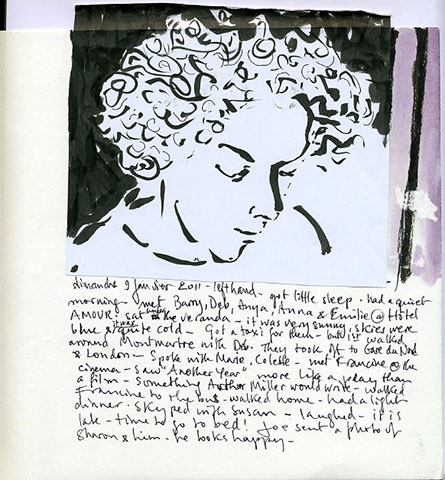 dimanche 9 janvier 2011 - left hand - got little sleep - had a quiet
morning - met Barry, Deb, Anya, Anna & Emilie @ Hotel
AMOUR - sat under the veranda - it was very sunny, skies were
blue & it was quite cold - Got a taxi for them - but 1st walked
around Montmartre with Deb. They took off to Gare du Nord
& London - Spoke with Marie, Colette - met Francine @ the
cinema - saw "Another Year" more like a play than
a film - Something Arthur Miller would write - walked
Francine to the bus - walked home - had a light
dinner - skyped with Susan - laughed - it is
late - time to go to bed! Joe sent a photo of
Sharon & him - he looks happy -